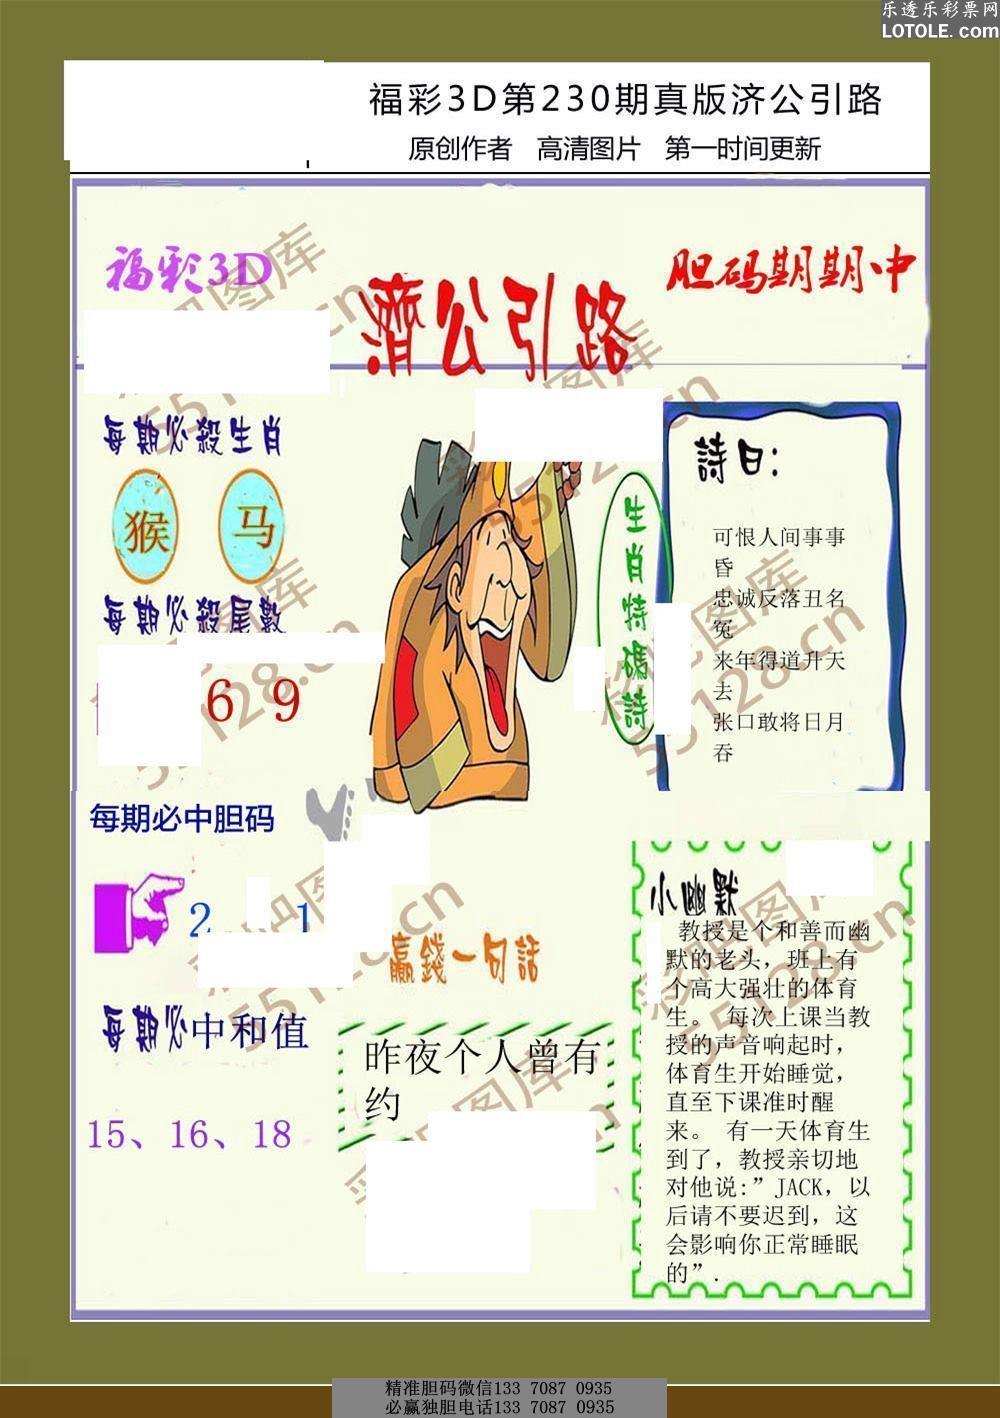 乐透乐彩票网
LOTOLE.com
福彩3D第230期真版济公引路
原创作者 高清图片 第一时间更新
福彩3D
濟公引路
胆码期期中
每期必殺生肖
猴 马
每期必殺尾數
6 9
每期必中胆码
2 1
每期必中和值
15、16、18
生肖特碼詩
詩曰:
可恨人间事事
昏
忠诚反落丑名
冤
来年得道升天
去
张口敢将日月
吞
赢錢一句話
昨夜个人曾有
约
小幽默
教授是个和善而幽
默的老头，班上有
个高大强壮的体育
生。 每次上课当教
授的声音响起时，
体育生开始睡觉，
直至下课准时醒
来。 有一天体育生
到了，教授亲切地
对他说:”JACK，以
后请不要迟到，这
会影响你正常睡眠
的”.
彩吧图库
55128.cn
精准胆码微信133 7087 0935
必赢独胆电话133 7087 0935